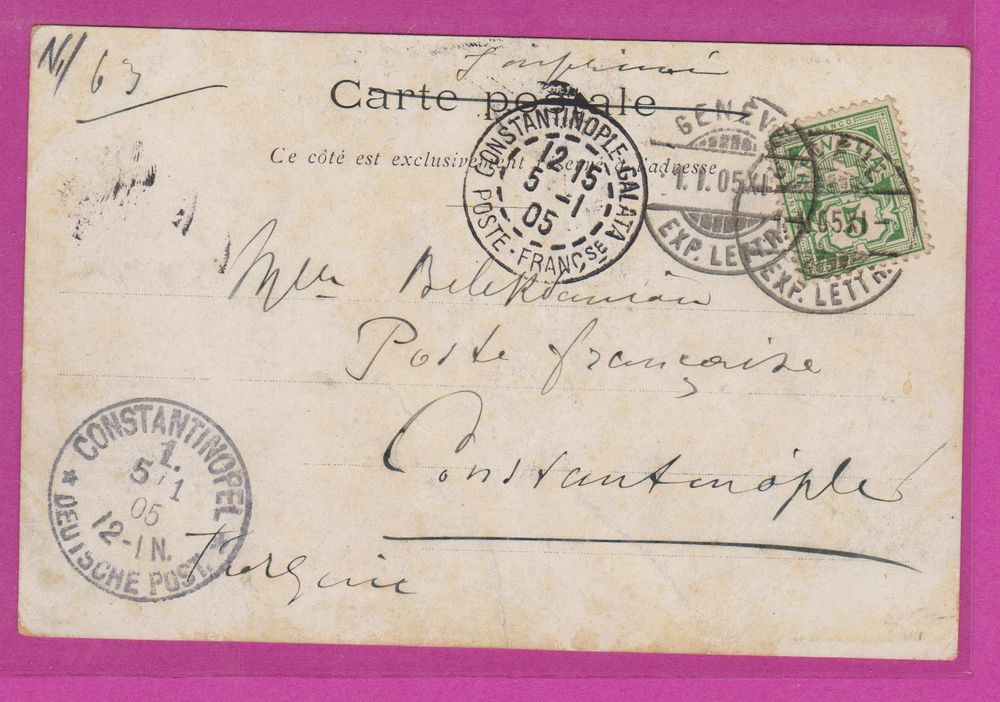 N./63
Imprimé
Carte postale
Ce côté est exclusivement réservé à l'adresse
CONSTANTINOPLE-GALATA
12 15
5 -1
05
POSTE-FRANÇSE
GENÈVE
1. I. 05 XI
EXP. LETTR.
05 XI -
EXP. LETTR.
HELVETIA
FRANCO
5
Mlle Bilektamian
Poste française
Constantinople
Turquie
CONSTANTINOPEL
1.
5/1
05
12-1N.
* DEUTSCHE POST. *